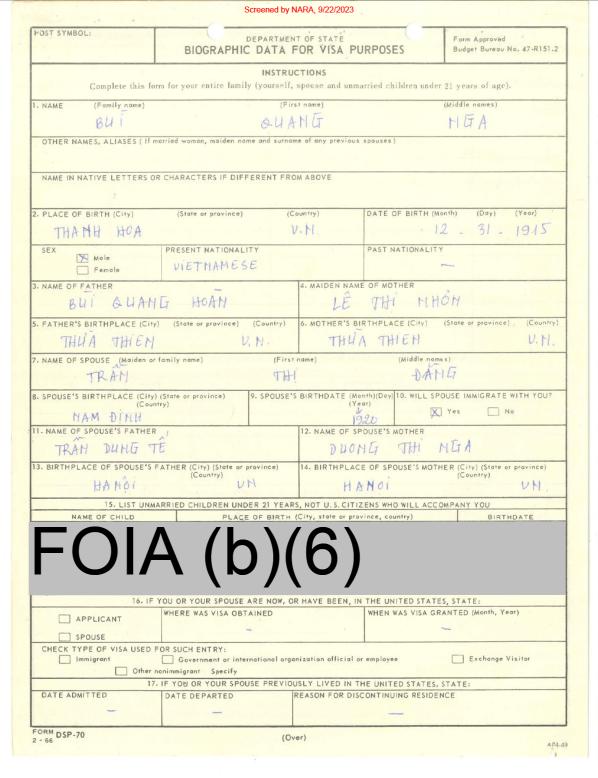 Screened by NARA, 9/22/2023
POST SYMBOL:
DEPARTMENT OF STATE
BIOGRAPHIC DATA FOR VISA PURPOSES
Form Approved
Budget Bureau No. 47-R151.2
INSTRUCTIONS
Complete this form for your entire family (yourself, spouse and unmarried children under 21 years of age).
1. NAME (Family name) (First name) (Middle names)
BUI QUANG NGA
OTHER NAMES, ALIASES ( If married woman, maiden name and surname of any previous spouses)
NAME IN NATIVE LETTERS OR CHARACTERS IF DIFFERENT FROM ABOVE
2. PLACE OF BIRTH (City) (State or province) (Country) DATE OF BIRTH (Month) (Day) (Year)
THANH HOA V.N. 12 - 31 - 1915
SEX PRESENT NATIONALITY PAST NATIONALITY
Male
Female
VIETNAMESE —
3. NAME OF FATHER 4. MAIDEN NAME OF MOTHER
BUI QUANG HOÃN LÊ THI NHÓN
5. FATHER'S BIRTHPLACE (City) (State or province) (Country) 6. MOTHER'S BIRTHPLACE (City) (State or province) (Country)
THUA THIEN V.N. THUA THIEN V.N.
7. NAME OF SPOUSE (Maiden or family name) (First name) (Middle names)
TRẦN THI ĐẢNG
8. SPOUSE'S BIRTHPLACE (City) (State or province) (Country) 9. SPOUSE'S BIRTHDATE (Month)(Day) (Year) 10. WILL SPOUSE IMMIGRATE WITH YOU?
NAM ĐINH 1920 Yes No
11. NAME OF SPOUSE'S FATHER 12. NAME OF SPOUSE'S MOTHER
TRẦN DUNG TÊ DUONG THI NGA
13. BIRTHPLACE OF SPOUSE'S FATHER (City) (State or province) (Country) 14. BIRTHPLACE OF SPOUSE'S MOTHER (City) (State or province) (Country)
HANÔI VN HANOI VN.
15. LIST UNMARRIED CHILDREN UNDER 21 YEARS, NOT U.S. CITIZENS WHO WILL ACCOMPANY YOU
NAME OF CHILD PLACE OF BIRTH (City, state or province, country) BIRTHDATE
FOIA (b)(6)
16. IF YOU OR YOUR SPOUSE ARE NOW, OR HAVE BEEN, IN THE UNITED STATES, STATE:
APPLICANT
SPOUSE
WHERE WAS VISA OBTAINED WHEN WAS VISA GRANTED (Month, Year)
— —
CHECK TYPE OF VISA USED FOR SUCH ENTRY:
Immigrant Government or international organization official or employee Exchange Visitor
Other nonimmigrant Specify
17. IF YOU OR YOUR SPOUSE PREVIOUSLY LIVED IN THE UNITED STATES, STATE:
DATE ADMITTED DATE DEPARTED REASON FOR DISCONTINUING RESIDENCE
— — —
FORM DSP-70
2 - 66
(Over)